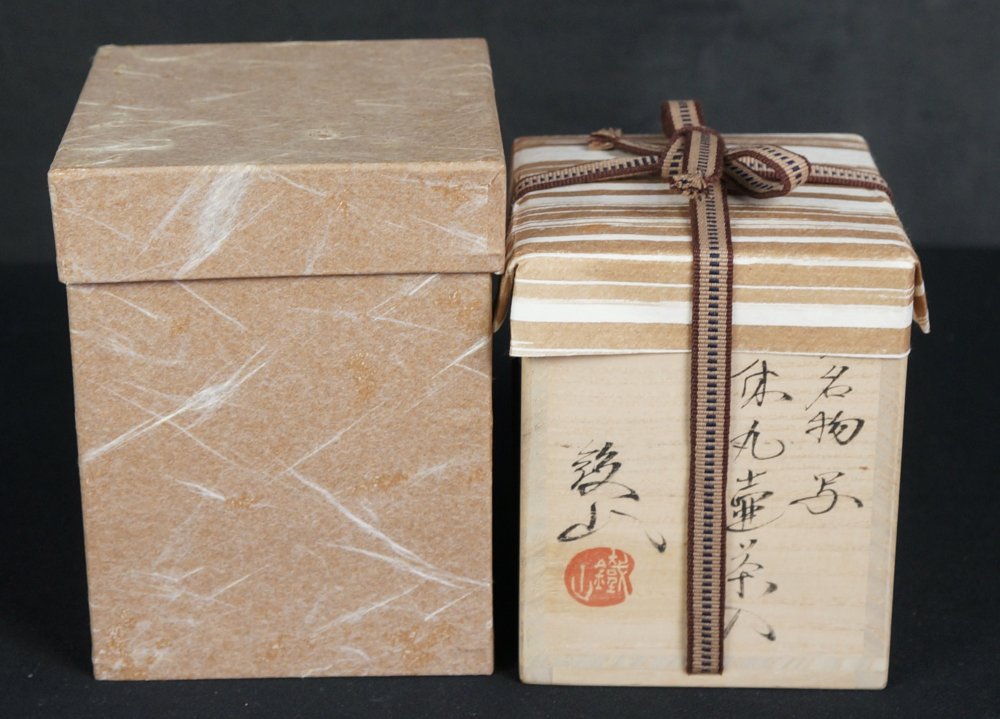 名物写
休丸壺茶入
鐵山
鐵山